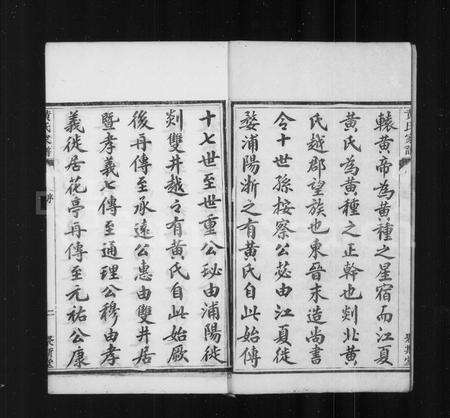 轅黃帝為黃種之星宿而江夏
黃氏為黃種之正幹也剡北黃
氏越郡望族也東晉末造尚書
令十世孫按察公苾由江夏徙
婺浦陽浙之有黃氏自此始傳
十七世至世重公玅由浦陽徙
剡雙井越之有黃氏自此始厥
後再傳至承遠公惠由雙井居
暨孝義七傳至通理公穆由孝
義徙居花亭再傳至元祐公康
黃氏家譜